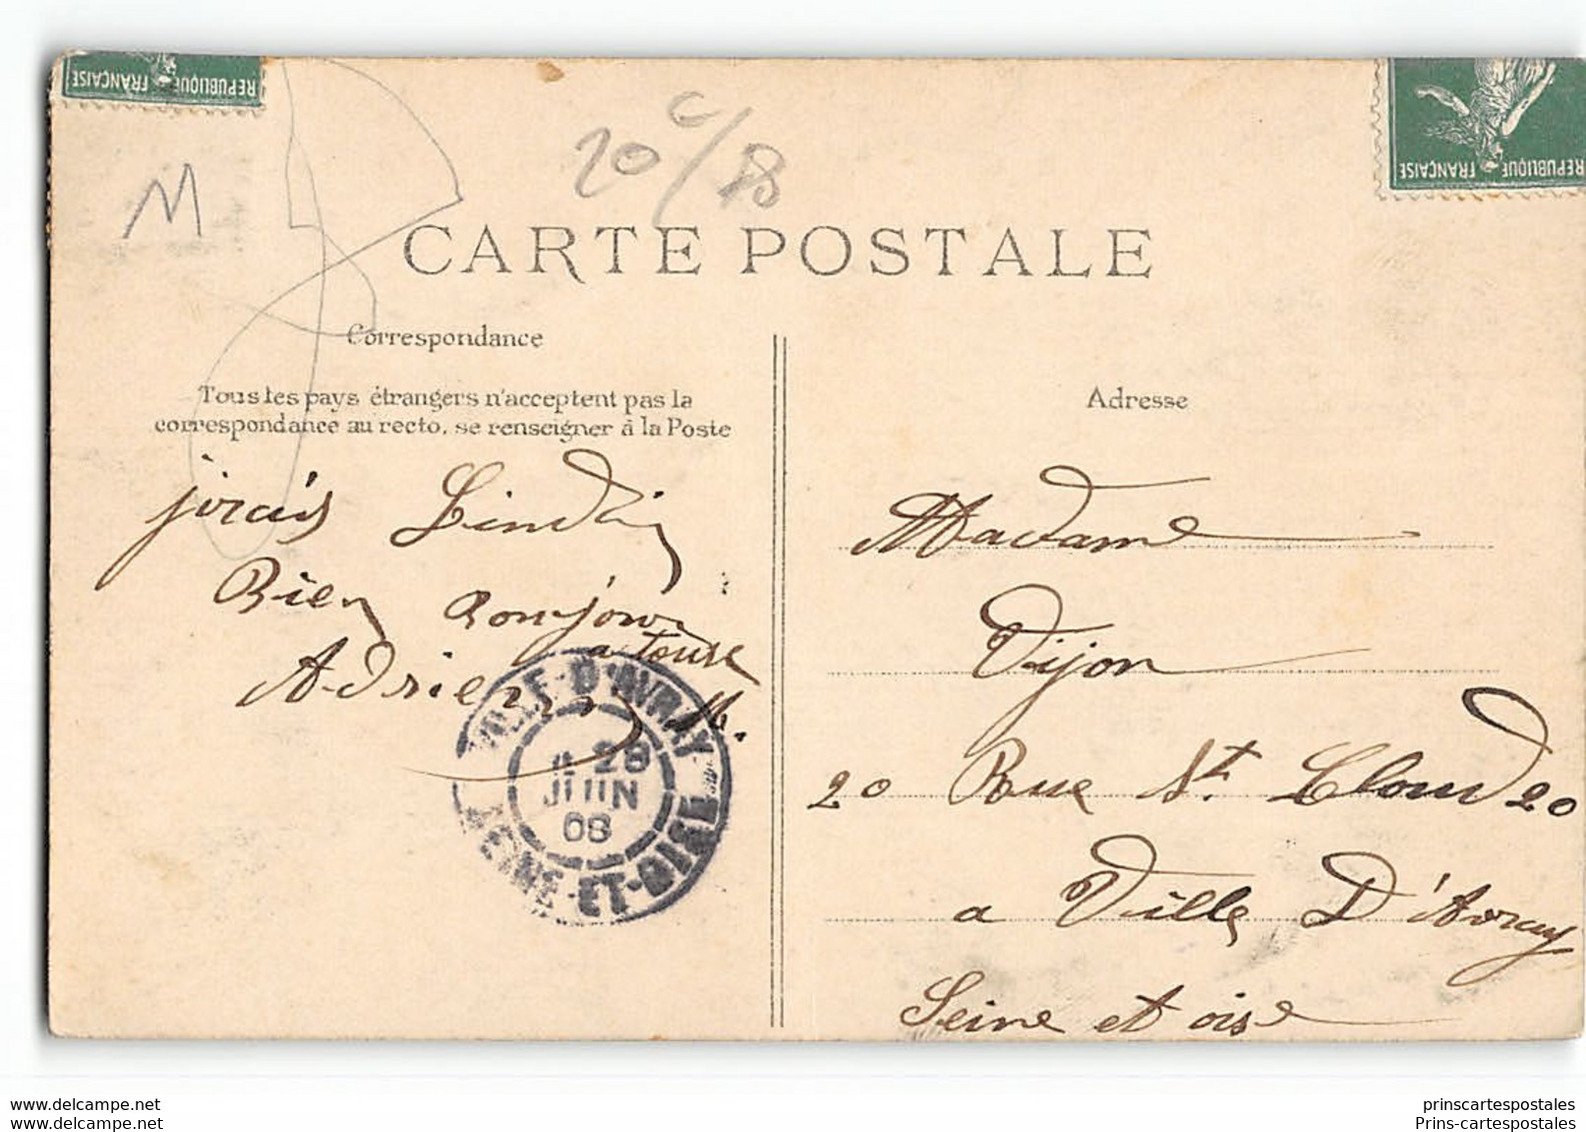 REPUBLIQUE FRANÇAISE
REPUBLIQUE FRANÇAISE
M
20 c/
CARTE POSTALE
Correspondance
Tous les pays étrangers n'acceptent pas la
correspondance au recto, se renseigner à la Poste
jirais Lindi
Bien Bonjour
a tous
Adrien M.
VILLE-D'AVRAY
28
JUIN
08
SEINE-ET-OISE
Adresse
Madame
Dijon
20 Rue St. Cloud 20
a Ville D'Avray
Seine et oise
www.delcampe.net
www.delcampe.net
prinscartespostales
Prins-cartespostales